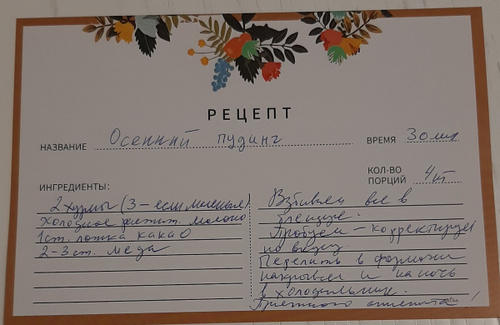 РЕЦЕПТ
НАЗВАНИЕ Осенний пудинг ВРЕМЯ 30 мин
КОЛ-ВО
ПОРЦИЙ 4 шт
ИНГРЕДИЕНТЫ:
2 хурмы (3 - если мелкие)
холодное растит. молоко
1 ст. ложка какао
2-3 ст. меда
Взбиваем все в
блендере.
Пробуем - корректируем
по вкусу
Перелить в формочки
накрываем и на ночь
в холодильник.
Приятного аппетита!